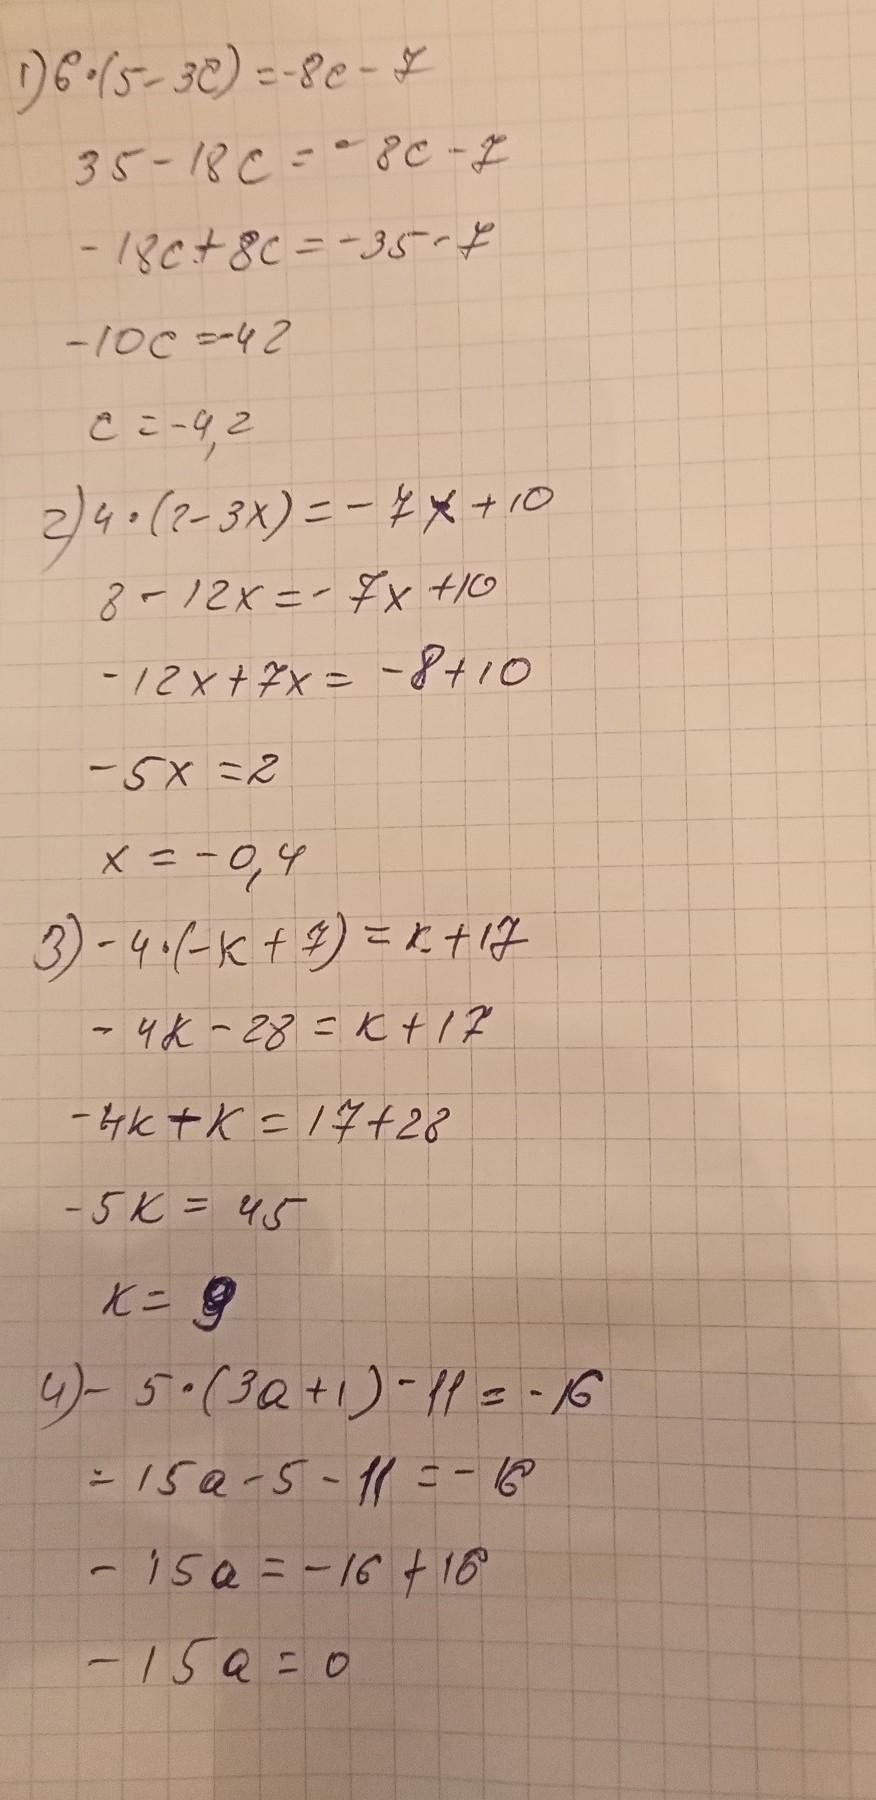 1) 6·(5-3c)=-8c-7
35-18c=-8c-7
-18c+8c=-35-7
-10c=-42
c=-4,2
2) 4·(2-3x)=-7x+10
8-12x=-7x+10
-12x+7x=-8+10
-5x=2
x=-0,4
3) -4·(-k+7)=k+17
-4k-28=k+17
-4k+k=17+28
-5k=45
k=9
4) -5·(3a+1)-11=-16
-15a-5-11=-16
-15a=-16+16
-15a=0